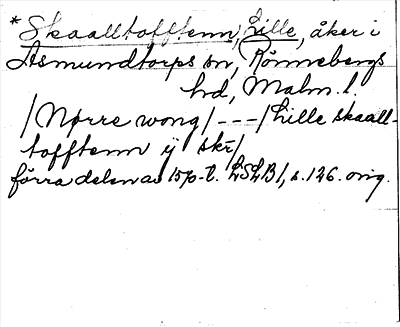 *Skaalltofftenn, Lille, åker i
Asmundtorps sn, Rönnebergs
hd, Malm. l.
/Nørre wong/---/Lille skaall-
tofftenn ij skr/
förra delen av 1570-t. LSLB 1, s. 126. orig.